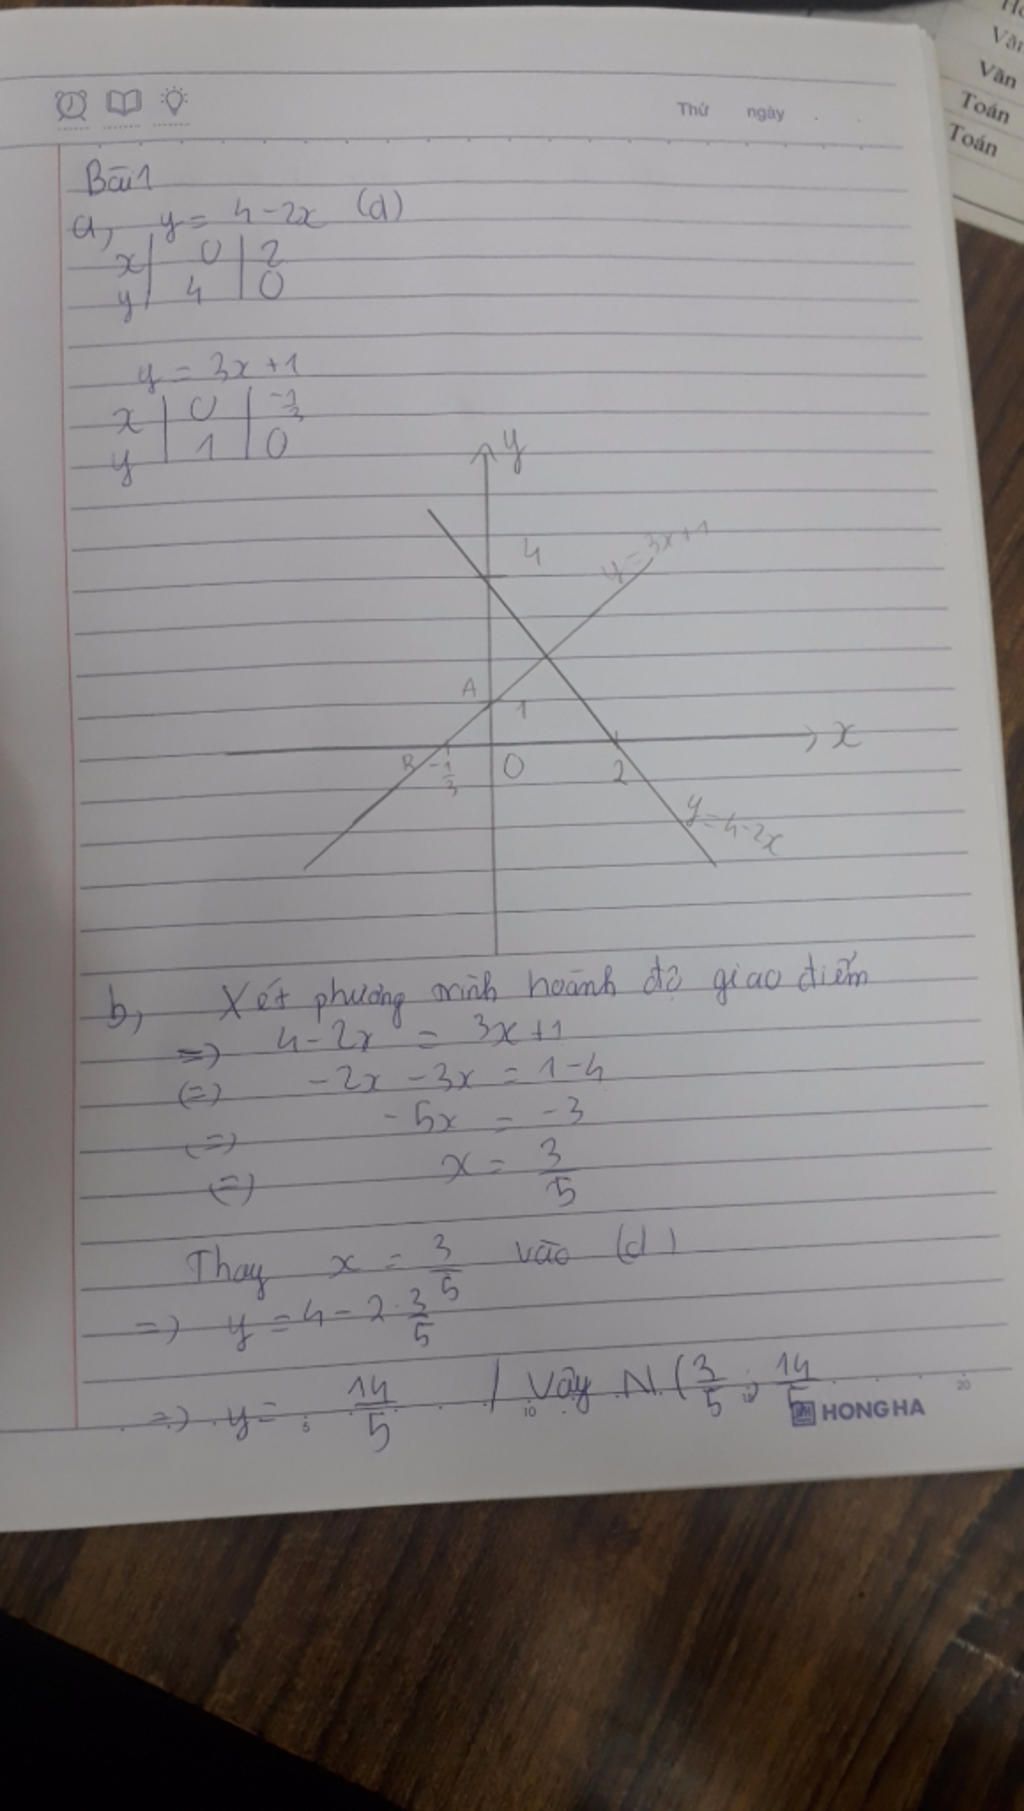 Văn
Văn
Toán
Toán
Thứ ngày
Bài 1
a, y = 4-2x (d)
x | 0 | 2
y | 4 | 0
y = 3x+1
x | 0 | -1/3
y | 1 | 0
y
4
y=3x+1
A
1
x
B -1/3 0 2
y=4-2x
b, Xét phương trình hoành độ giao điểm
=> 4-2x = 3x+1
(=) -2x -3x = 1-4
(=) -5x = -3
(=) x = 3/5
Thay x = 3/5 vào (d)
=> y = 4-2.3/5
=> y = 14/5 / Vậy N (3/5 ; 14/5
5 10 15 20
HONG HA